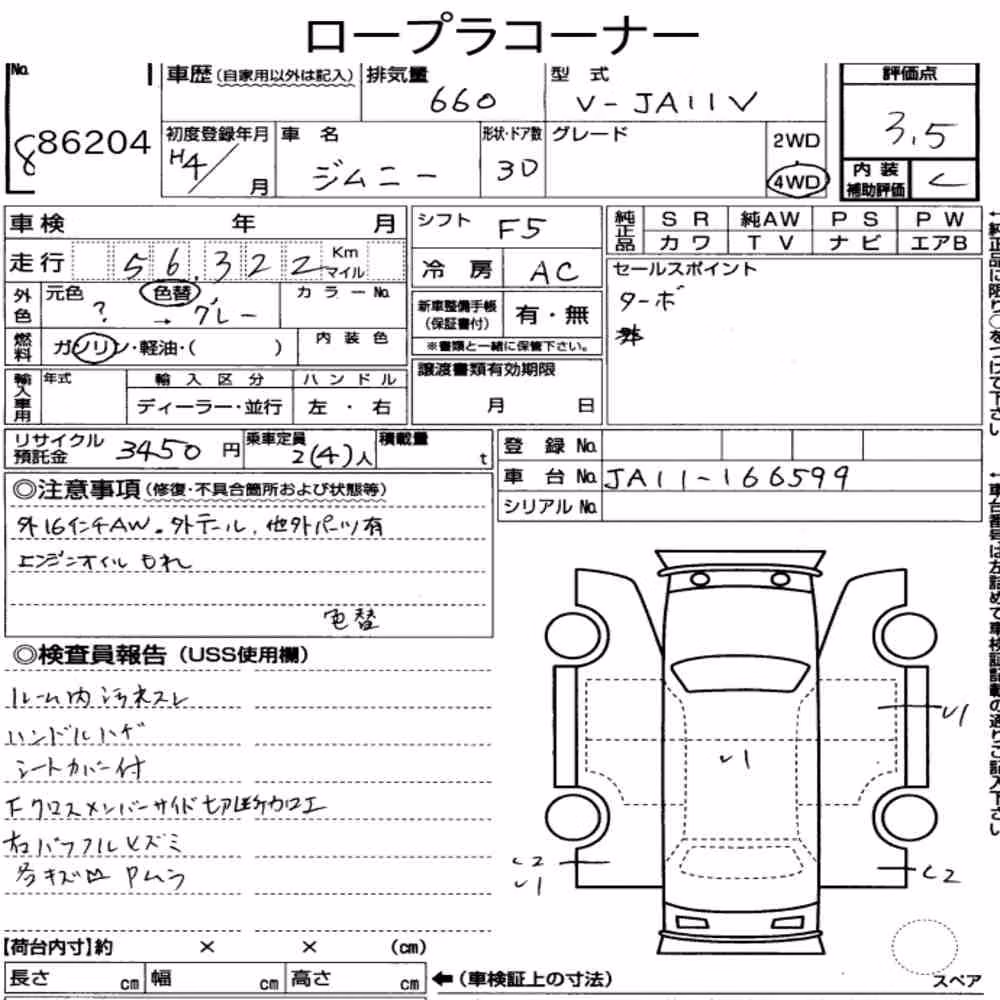 ロープラコーナー
No. 車歴(自家用以外は記入) 排気量 型式 評価点
886204 660 V-JA11V 3.5
初度登録年月 車名 形状・ドア数 グレード 2WD
H4/月 ジムニー 3D 4WD 内装補助評価 C
車検 年 月 シフト F5 純正品 SR 純AW PS PW
カワ TV ナビ エアB
走行 56,322 Km マイル 冷房 AC セールスポイント
ターボ
外色 元色 ? 色替 → グレー カラーNo.
新車整備手帳(保証書付) 有・無
※書類と一緒に保管下さい。
燃料 ガソリン・軽油・( ) 内装色
譲渡書類有効期限
月 日
輸入車用 年式 輸入区分 ハンドル
ディーラー・並行 左・右
リサイクル預託金 3450円 乗車定員 2(4)人 積載量 t
登録No.
車台No. JA11-166599
シリアルNo.
◎注意事項(修復・不具合箇所および状態等)
外16インチAW。外テール、他外パーツ有
エンジンオイルもれ
色替
◎検査員報告(USS使用欄)
ルーム内汚れスレ
ハンドルハゲ
シートカバー付
Fクロスメンバーサイド切断加工
右バッフルヒズミ
各キズ凹 Pムラ
【荷台内寸】約 × × (cm)
長さ cm 幅 cm 高さ cm ←(車検証上の寸法)
スペア
↓純正品に限り○をつけて下さい
↓車台番号は左詰めで車検証記載の通りご記入下さい